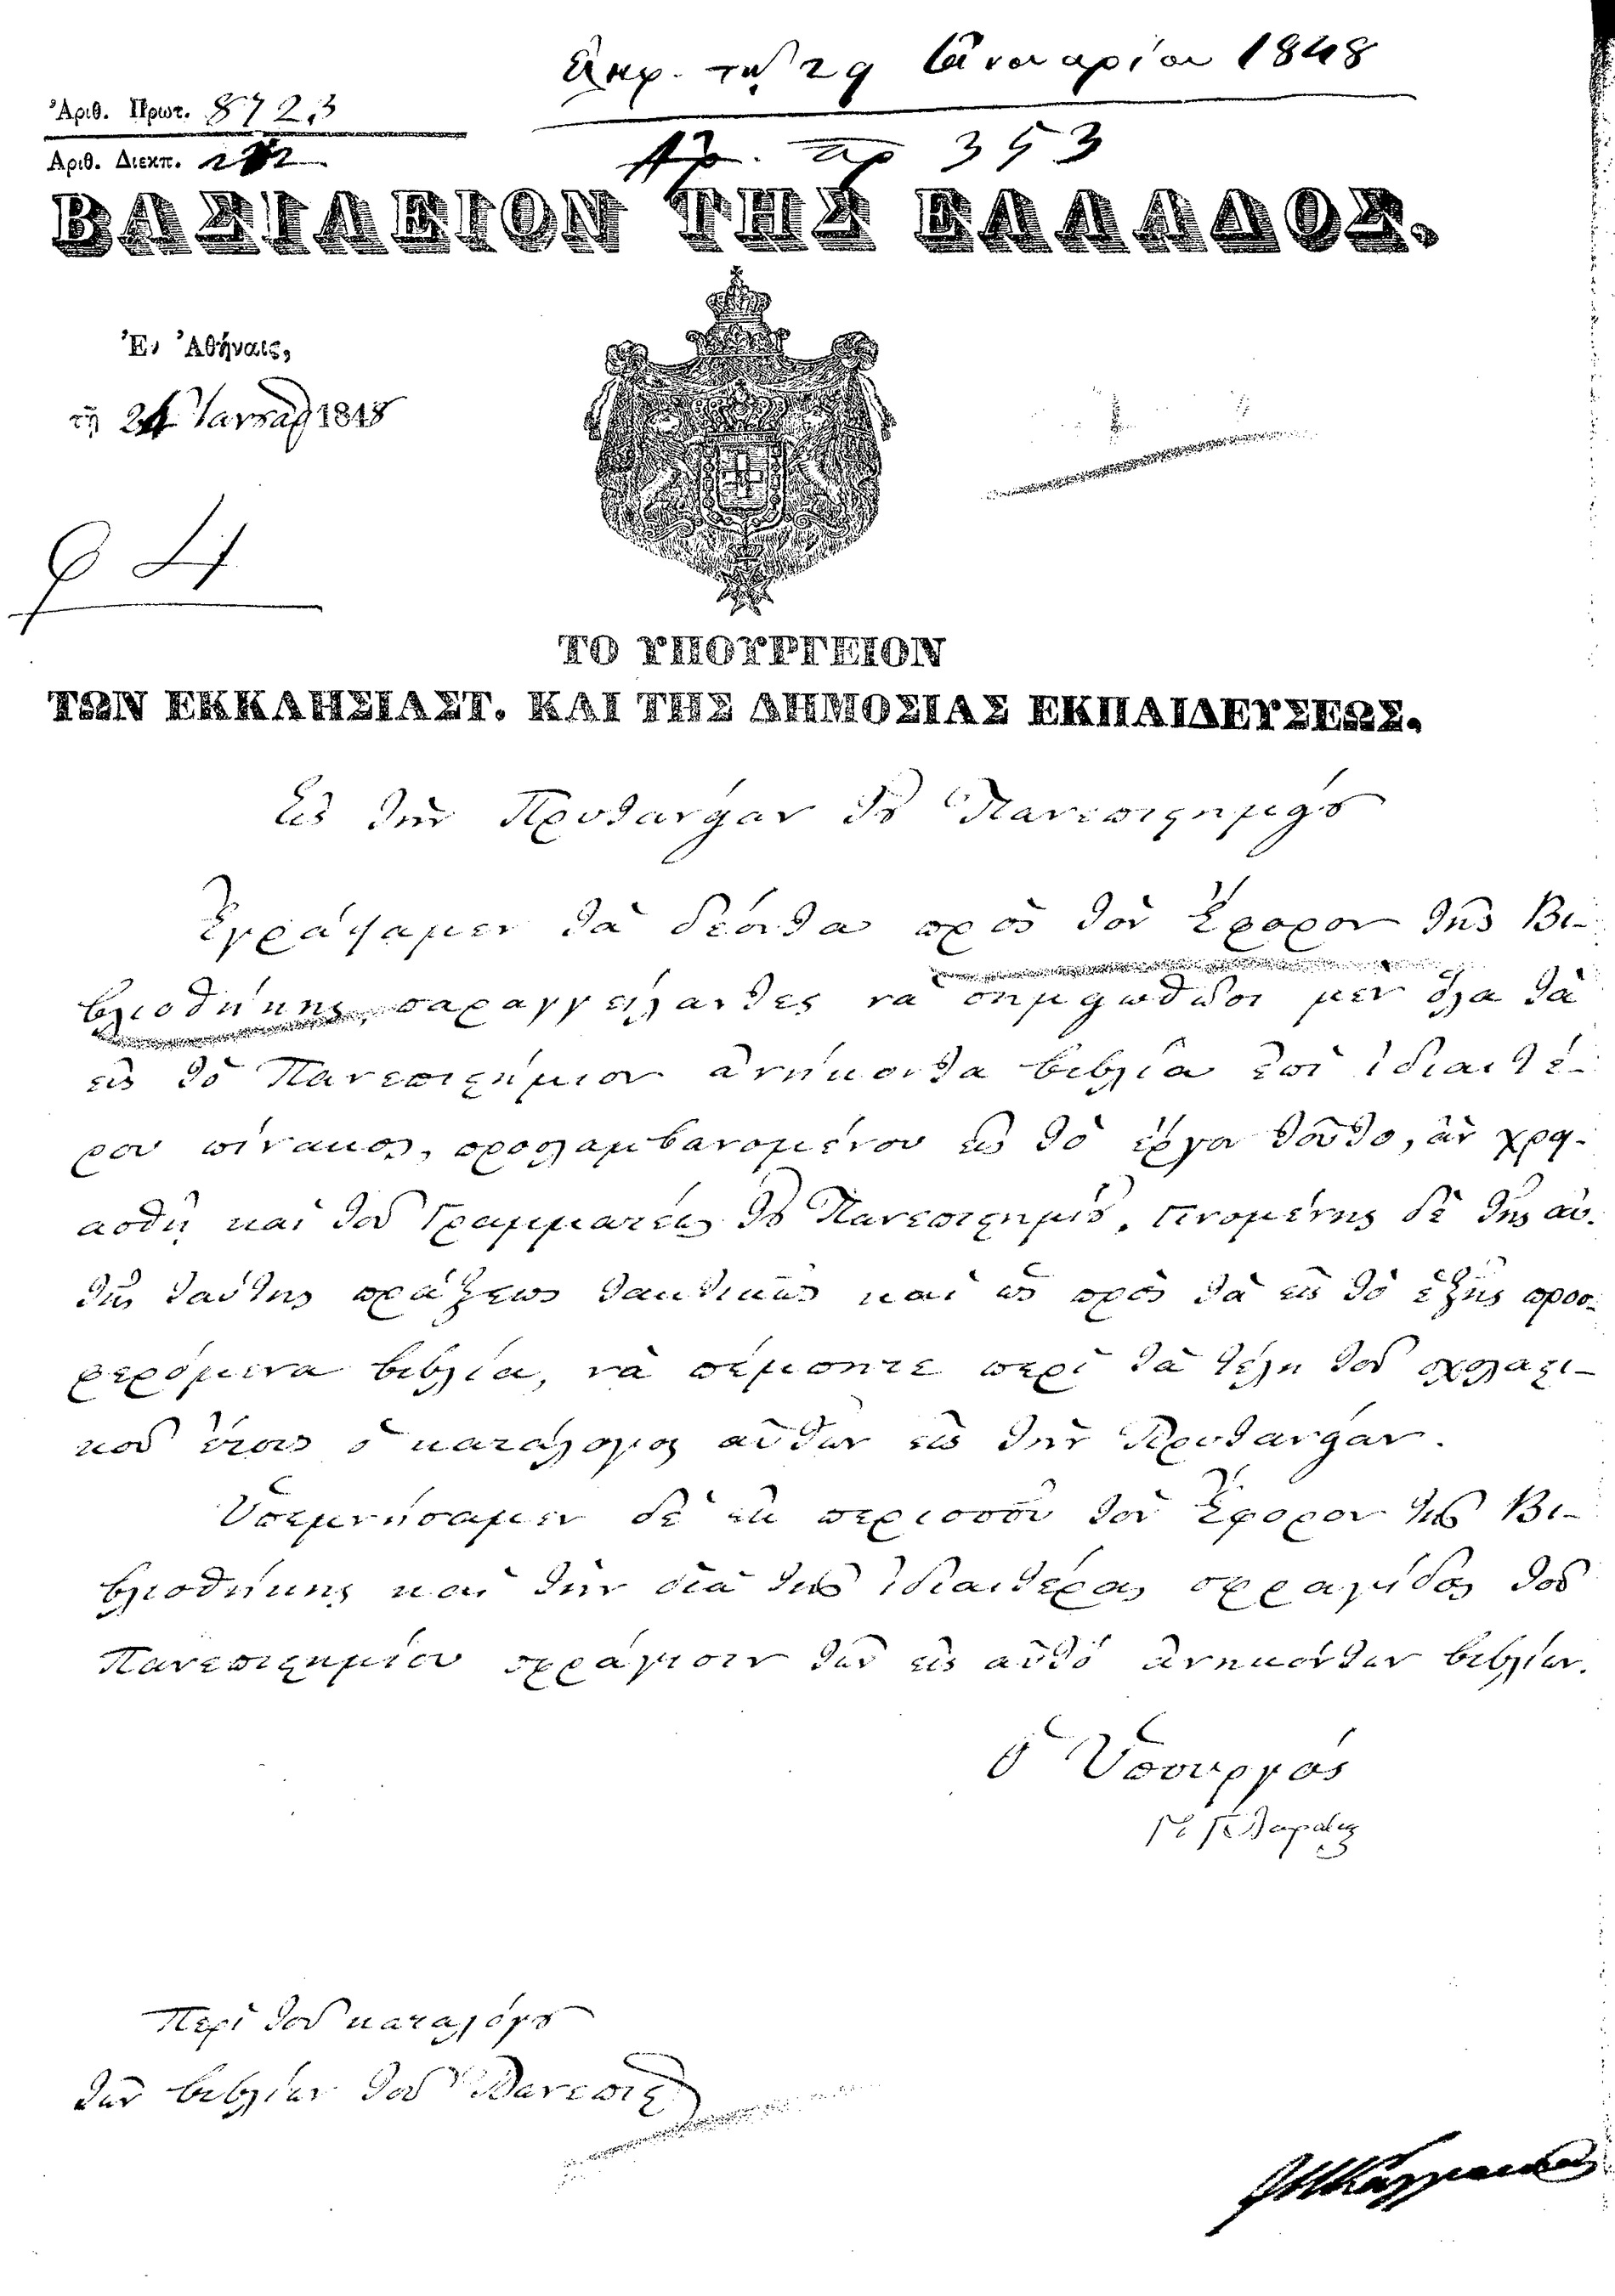 Ἐπερ. τῇ 29 Ἰανουαρίου 1848
Ἀριθ. Πρωτ. 8723
Ἀρ. πρ 353
Ἀριθ. Διεκπ.
ΒΑΣΙΛΕΙΟΝ ΤΗΣ ΕΛΛΑΔΟΣ.
Ἐν Ἀθήναις,
τῇ 24 Ἰανουαρ 1848
ΤΟ ΥΠΟΥΡΓΕΙΟΝ
ΤΩΝ ΕΚΚΛΗΣΙΑΣΤ. ΚΑΙ ΤΗΣ ΔΗΜΟΣΙΑΣ ΕΚΠΑΙΔΕΥΣΕΩΣ.
Εἰς τὴν Πρυτανείαν τοῦ Πανεπιστημείου
Ἐγράψαμεν τὰ δέοντα πρὸς τὸν Ἔφορον τῆς Βι-
βλιοθήκης, παραγγείλαντες νὰ σημειωθῶσι μὲν ὅλα τὰ
εἰς τὸ Πανεπιστήμιον ἀνήκοντα βιβλία ἐπὶ ἰδιαιτέ-
ρου πίνακος, προσλαμβανομένου εἰς τὸ ἔργον τοῦτο, ἂν χρει-
ασθῇ καὶ τοῦ Γραμματέως τοῦ Πανεπιστημίου, γινομένης δὲ τῆς αὐ-
τῆς ταύτης πράξεως τακτικῶς καὶ ὡς πρὸς τὰ εἰς τὸ ἑξῆς προσ-
φερόμενα βιβλία, νὰ πέμπητε περὶ τὰ τέλη τοῦ σχολαστι-
κοῦ ἔτους ὁ κατάλογος αὐτῶν εἰς τὴν Πρυτανείαν.
Ὑπεμνήσαμεν δὲ ἐκ περισσοῦ τὸν Ἔφορον τῆς Βι-
βλιοθήκης καὶ τὴν διὰ τῆς ἰδιαιτέρας σφραγίδος τοῦ
Πανεπιστημίου σφράγισιν τῶν εἰς αὐτὸ ἀνηκόντων βιβλίων.
Ὁ Ὑπουργὸς
Περὶ τοῦ καταλόγου
τῶν βιβλίων τοῦ Πανεπιστ